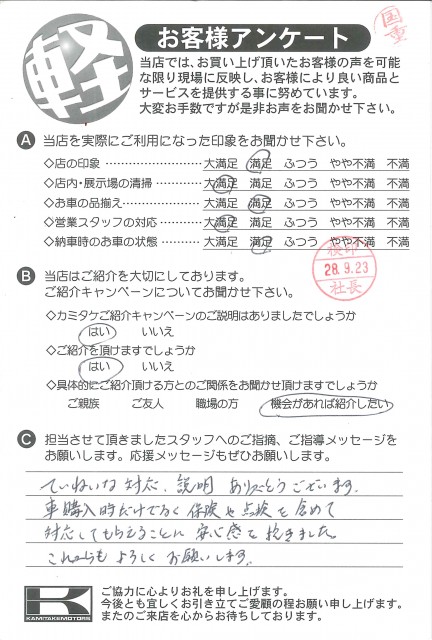 軽
お客様アンケート
国重
当店では、お買い上げ頂いたお客様の声を可能
な限り現場に反映し、お客様により良い商品と
サービスを提供する事に努めています。
大変お手数ですが是非お声をお聞かせ下さい。
A 当店を実際にご利用になった印象をお聞かせ下さい。
◇店の印象 …………………… 大満足 満足 ふつう やや不満 不満
◇店内・展示場の清掃 ………… 大満足 満足 ふつう やや不満 不満
◇お車の品揃え ……………… 大満足 満足 ふつう やや不満 不満
◇営業スタッフの対応 ………… 大満足 満足 ふつう やや不満 不満
◇納車時のお車の状態 ………… 大満足 満足 ふつう やや不満 不満
検印
28.9.23
社長
B 当店はご紹介を大切にしております。
ご紹介キャンペーンについてお聞かせ下さい。
◇カミタケご紹介キャンペーンのご説明はありましたでしょうか
はい いいえ
◇ご紹介を頂けますでしょうか
はい いいえ
◇具体的にご紹介頂ける方とのご関係をお聞かせ頂けますでしょうか
ご親族 ご友人 職場の方 機会があれば紹介したい
C 担当させて頂きましたスタッフへのご指摘、ご指導メッセージを
お願いします。応援メッセージもぜひお願いします。
ていねいな対応、説明 ありがとうございます。
車購入時だけでなく保険や点検を含めて
対応してもらえることに安心感を抱きました。
これからもよろしくお願いします。
KAMITAKEMOTORS
ご協力に心よりお礼を申し上げます。
今後とも宜しくお引き立てご愛顧の程お願い申し上げます。
またのご来店を心からお待ちしております。